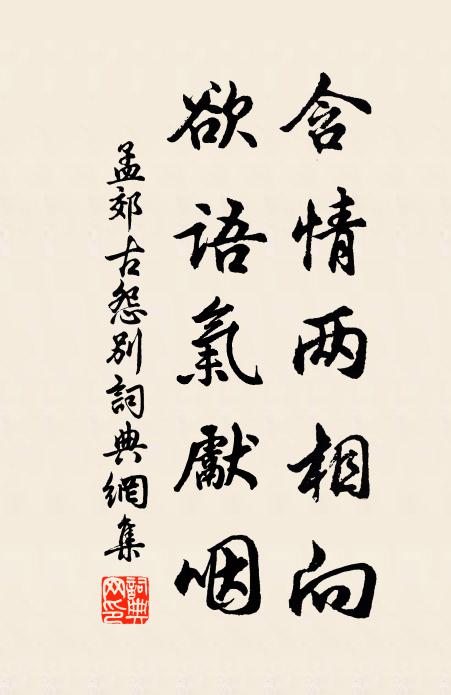 含情两相向
欲語氣獻咽
孟郊古怨别詞典網集
詞典
网印